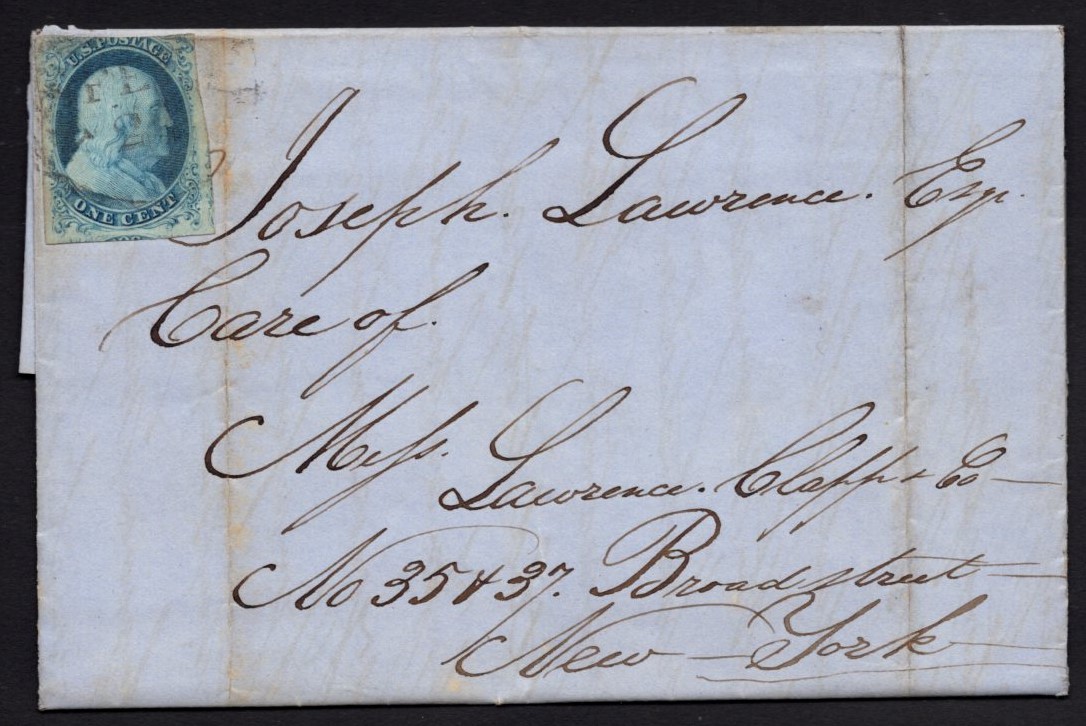 U.S. POSTAGE
ONE CENT
Joseph. Lawrence. Esq.
Care of.
Mess. Lawrence. Clapp & Co
No 35 & 37. Broad street
New York